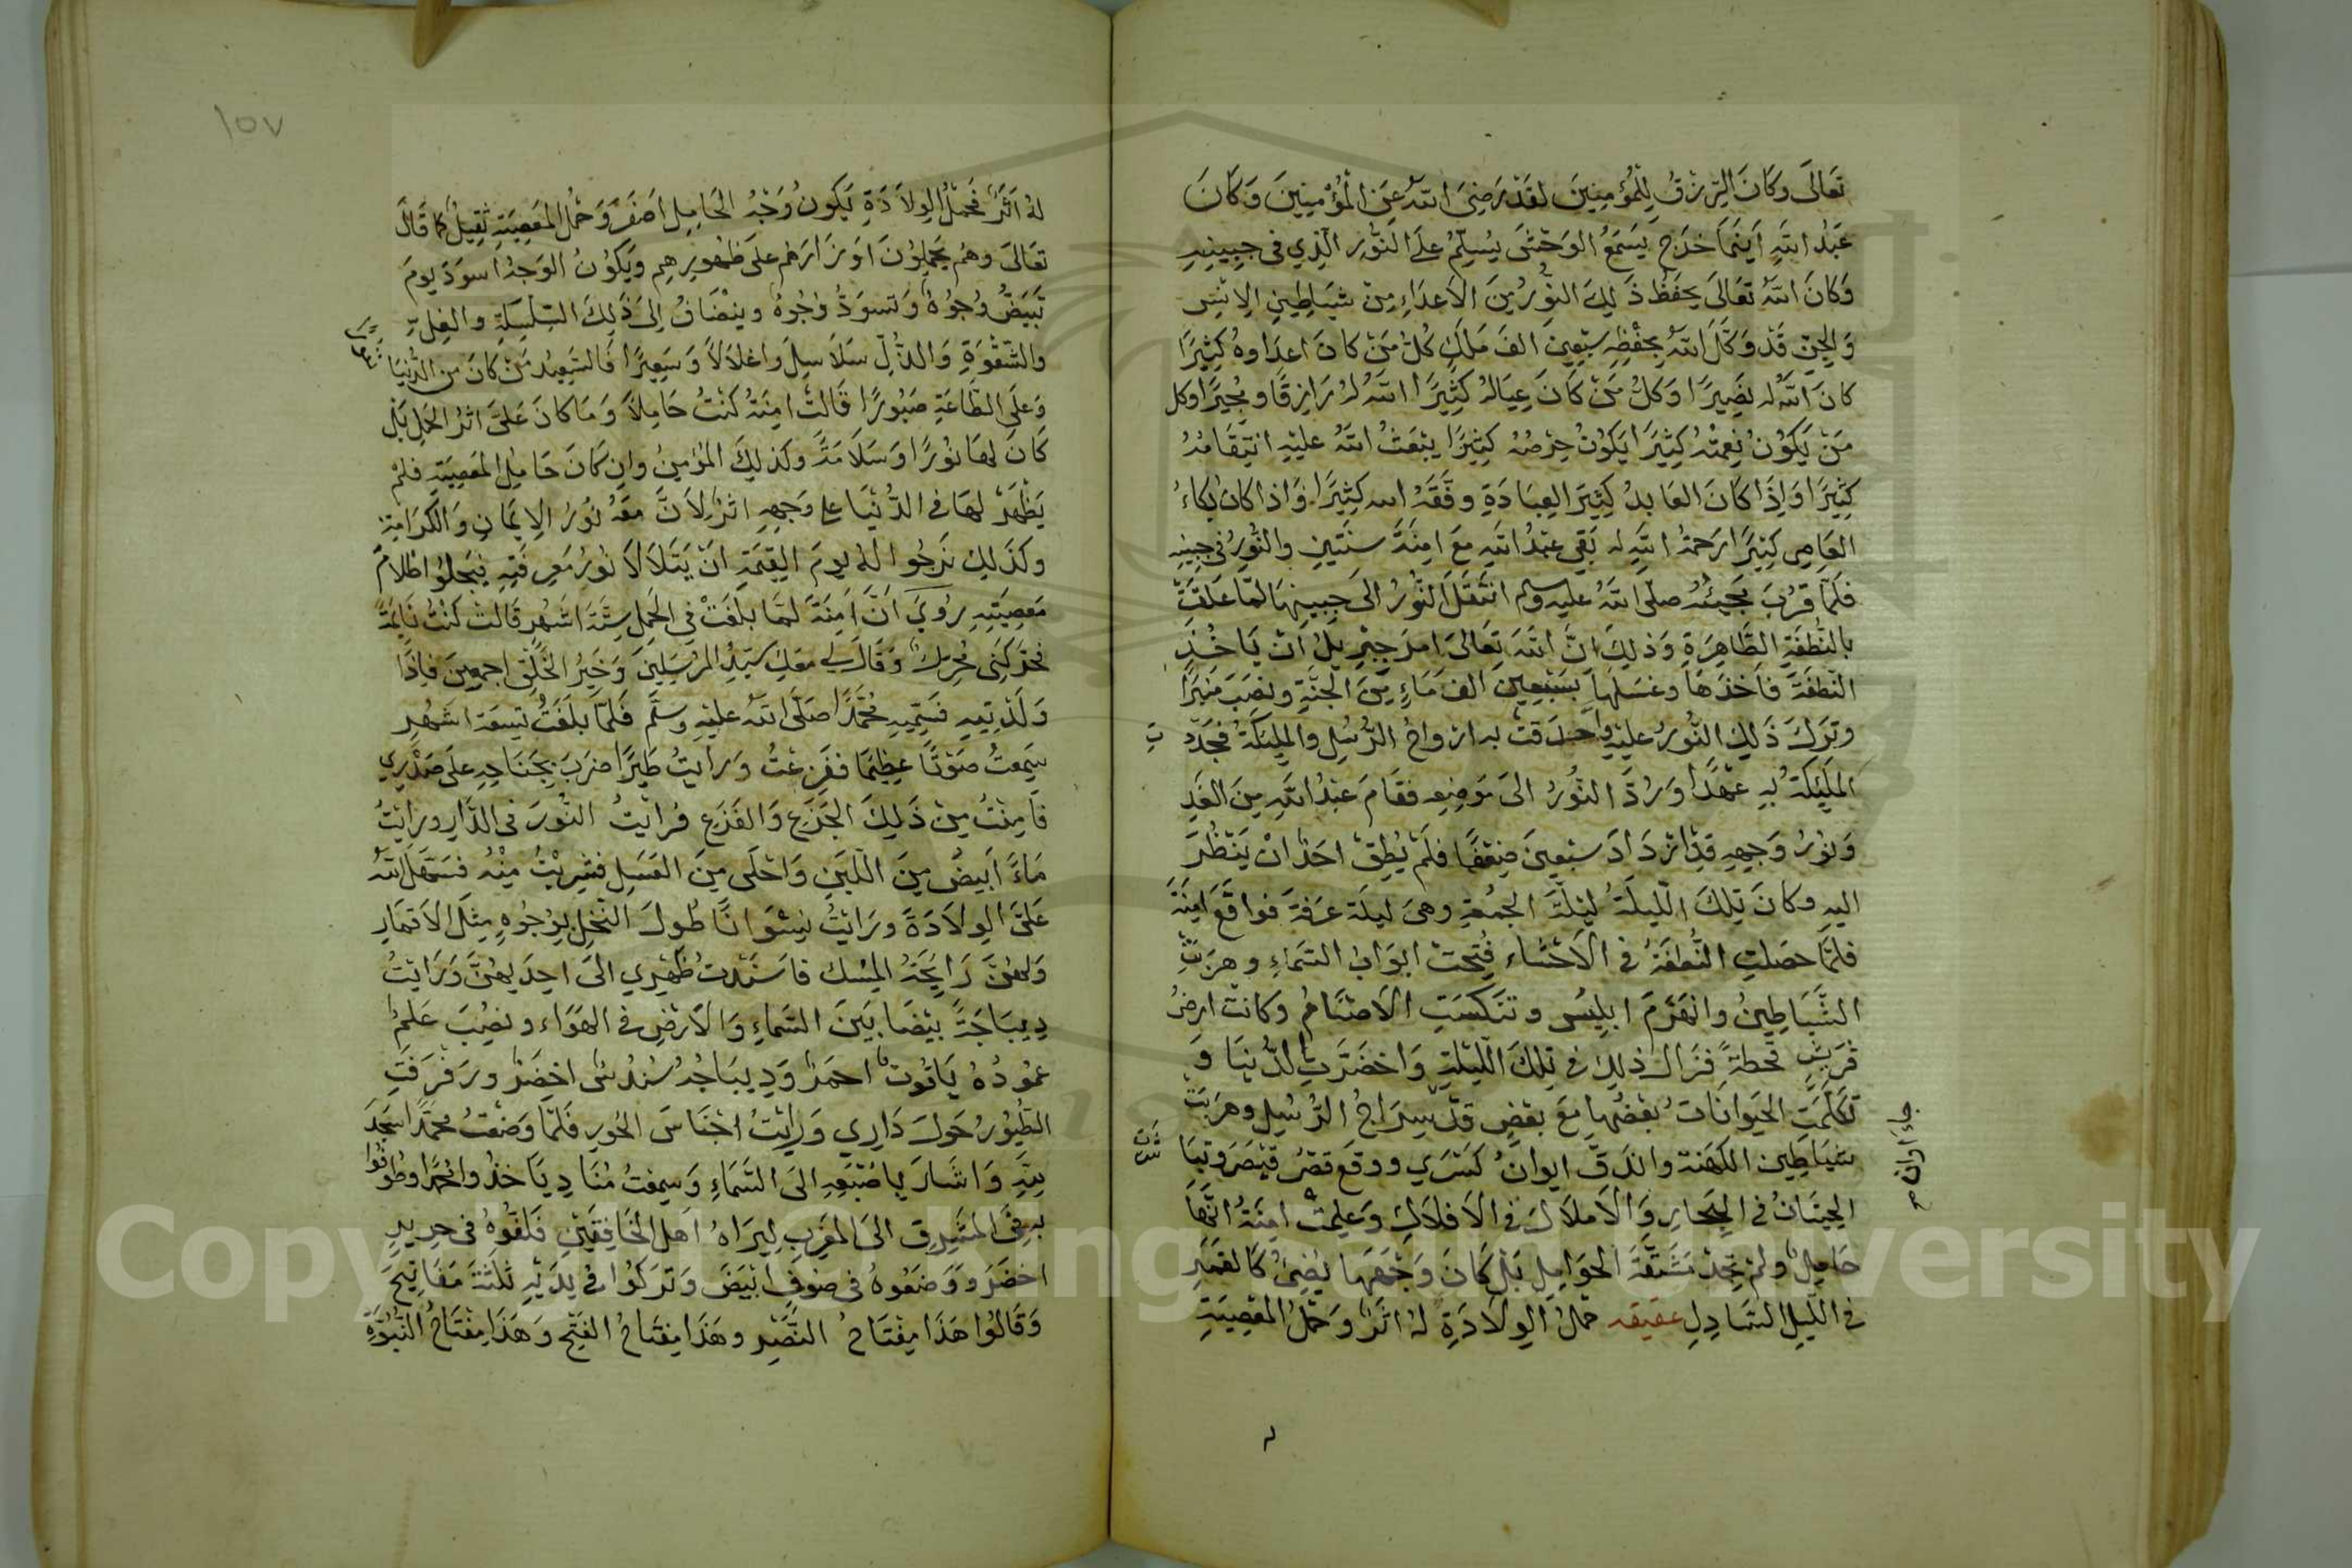 تَعَالَى وَكَانَ الرِّزْقُ لِلْمُؤْمِنِينَ لَقَدْ رَضِيَ اللهُ عَنِ الْمُؤْمِنِينَ وَكَانَ
عَبْدُ اللهِ اَيْنَمَا خَرَجَ يَسْمَعُ الوَحْشَ يُسَلِّمُ عَلَى النُّورِ الَّذِي فِي جَبِينِهِ
وَكَانَ اللهُ تَعَالَى يَحْفَظُ ذَلِكَ النُّورَ مِنَ الاَعْدَاءِ مِنْ شَيَاطِينِ الاِنْسِ
وَالجِنِّ قَدْ وَكَّلَ اللهُ بِحِفْظِهِ سَبْعِينَ اَلفَ مَلَكٍ كُلُّ مَنْ كَانَ اعدَاوهُ كَثِيرًا
كَانَ اللهُ لَهُ نَصِيرًا وَكُلُّ مَنْ كَانَ عِيَالُهُ كَثِيرًا اللهُ لَهُ رَازِقًا وَمُجِيرًا وكل
مَنْ يَكُونُ نِعْمَتُهُ كَثِيرًا يَكُونُ حِرْصُهُ كَثِيرًا يَبْعَثُ اللهُ عَلَيْهِ انْتِقَامُهُ
كَثِيرًا وَاِذَا كَانَ العَابِدُ كَثِيرَ العِبَادَةِ وَفَّقَهُ الله كَثِيرًا وَاذا كان بُكَاءُ
العَاصِي كَثِيرًا رَحْمَةُ اللهِ له بَقِيَ عَبْدُ اللهِ مَعَ امِنَةَ سَنَتَيْنِ وَالنُّورُ فِي جَبِينِهِ
فَلَمَّا قَرُبَ مَجِيئُهُ صلى اللهُ عليه وسلم انْتَقَلَ النُّورُ الى جَبِينِهَا لَمَّا عَلَقَتْ
بِالنُّطْفَةِ الطَّاهِرَةِ وَذَلِكَ انَّ اللهَ تَعَالَى امَرَ جِبْرِيلَ اَنْ يَاخُذَ
النُّطْفَةَ فَاَخَذَهَا وغَسَلَهَا بِسَبْعِينَ الفَ مَاءٍ مِنَ الجَنَّةِ وَنَصَبَ مِنْبَرًا
وَتَرَكَ ذَلِكَ النُّورُ عَلَيْهِ واحدقت به ارْوَاحُ الرُّسُلِ وَالمَلِيكَةُ فَجَدَّدَتِ
المَلَيِكَةُ بِهِ عَهْدًا وَرَدَّ النُّورُ الَى مَوْضِعِهِ فَقَامَ عَبْدُ اللهِ مِنَ الغَدِ
وَنُورُ وَجْهِهِ قَدِ ازْدَادَ سَبْعِينَ ضِعْفًا فَلَمْ يُطِقْ احَدٌ انْ يَنْظُرَ
اليهِ وَكَانَ تِلْكَ اللَّيْلَةُ لَيْلَةَ الجُمُعَةِ وَهِيَ لَيْلَةَ عَرَفَةَ فَوَاقَعَ امِنَةَ
فَلَمَّا حَصَلَتِ النُّطْفَةُ فِي الاَحْشَاء فُتِحَتْ ابْوَابُ السَّمَاءِ وَهَرَبَتِ
الشَّيَاطِينُ وانْهَزَمَ ابْلِيسُ وَتَنَكَّسَتِ الاَصْنَامُ وكَانَتْ ارضُ
قُرَيْشٍ قَحِطَةً فَزَالَ ذلك فِي تِلْكَ اللَّيْلَةِ وَاخْضَرَّتِ الدُّنْيَا وَ
تَكَلَّمَتِ الحَيَوانَاتُ بَعْضُهَا مَعَ بَعْضٍ قَدْ سِرَاجُ الرُّسُلِ وَهَرَبَتْ
شَيَاطِينُ الكَهَنَةِ وانْدَقَّ ايوانُ كَسْرَي ووقَعَ قَصْرُ قَيْصَرَ وَتَبَاشَرَتْ
الحِيتَانُ فِي البِحَارِ وَالاَملاَكُ فِي الاَفْلاَكِ وَعَلِمَتْ امِنَةُ انَّهَا
حَامِلٌ وَلَمْ تَجِدْ مَشَقَّةَ الحَوَامِلِ بَلْ كَانَ وَجْهَهَا يُضِيُ كَالقَمَرِ
فِي اللَّيْلِ السَّادِلِ عقيقه حَمْلُ الوِلاَدَةِ لَهُ اثَرٌ وَحَمْلُ المَعْصِيَةِ
١٥٧
لَهُ اَثَرٌ فَحَمْلُ الوِلاَدَةِ يَكُونُ وَجْهُ الحَامِلِ اَصْفَرَ وَحَمْلُ المَعْصِيَةِ ثَقِيلٌ كَمَا قَالَ
تَعَالَى وَهُمْ يَحْمِلُونَ اَوْزَارَهُمْ عَلَى ظُهُورِهِم وَيَكُونُ الوَجْهُ اسوَدَ يَومَ
تَبْيَضُّ وُجُوهٌ وَتَسْوَدُّ وُجُوهٌ وَيَنْضَافُ اِلَى ذَلِكَ السِّلْسِلَةِ وَالغِلِّ
وَالشَّقْوَةِ وَالذُّلِّ سَلاَسِلَ وَاغْلاَلاً وَسَعِيرًا فَالسَّعِيدُ مَنْ كَانَ من الدُّنْيَا
وَعَلَى الطَّاعَةِ صَبُورًا قَالَتْ امِنَةُ كُنْتُ حَامِلاً وَمَا كَانَ عَلَيَّ اثَرُ الحَمْلِ بَلْ
كَانَ لَهَا نُورًا وَسَلاَمَةً وَكَذلِكَ المُؤْمِنُ وَانْ كَانَ حَامِلَ المَعْصِيَةِ فَلَمْ
يَظْهَرْ لَهَا فِي الدُّنْيَا عَلَى وَجْهِهِ اثَرٌ لِاَنَّ مَعَهُ نُورُ الاِيمَانِ وَالكَرَامَةِ
وَكَذَلِكَ نَرْجُوا لَهُ يَومَ القِيمَةِ اَنْ يَتَلاَلاَ نُورُ مَعْرِفَتِهِ فَيَجْلُوا ظَلاَمَ
مَعْصِيَتِهِ رُوِيَ اَنَّ امِنَةَ لَمَّا بَلَغَتْ فِي الحَمْلِ سِتَّةَ اَشْهُرٍ قَالَتْ كُنْتُ نَائِمَةً
فَحَرَّكَنِي مُحَرِّكٌ وَقَالَ لِي مَعَكِ سَيِّدُ المُرْسَلِينَ وَخَيْرُ الخَلْقِ اجمعين فَاِذَا
وَلَدْتِيهِ فَسَمِّيهِ مُحَمَّدًا صَلَّى اللهُ عليهِ وَسَلَّم فَلَمَّا بَلَغْتُ تِسْعَةَ اشْهُرٍ
سَمِعْتُ صَوْتًا عَظِيمًا فَفَزِعْتُ وَرَايْتُ طَيْرًا ضَرَبَ بِجَنَاحِهِ عَلَى صَدْرِي
فَاَمِنْتُ مِنْ ذَلِكَ الجَزَعِ وَالفَزَعِ فَرَايْتُ النُّورَ فِي الدَّارِ وَرَايْتُ
مَاءً اَبْيَضَ مِنَ اللَّبَنِ وَاحْلَى مِنَ العَسَلِ فَشَرِبْتُ مِنْهُ فَسَهَّلَ اللهُ
عَلَيَّ الوِلاَدَةَ وَرَايْتُ نِسْوَانًا طُولَ النَّخْلِ بِوُجُوهٍ مِثْلَ الاَقْمَارِ
وَلَهُنَّ رَايِحَةُ المِسْكِ فَاسْنَدْتُ ظَهْرِي الَى احِدَيهُنَّ وَرَايْتُ
دِيبَاجَةً بَيْضَا بَيْنَ السَّمَاءِ وَالاَرْضِ فِي الهَوَاءِ وَنُصِبَ عَلَمٌ
عَمُودُهُ يَاقُوتٌ احْمَرُ وَدِيبَاجُهُ سُنْدُسٌ اخْضَرُ وَرَفْرَفَتِ
الطُّيُورُ حَوْلَ دَارِي وَرَايْتُ اجْنَاسَ الحُورِ فَلَمَّا وَضَعْتُ مُحَمَّدًا سَجَدَ
لِلهِ وَاشَارَ بِاصْبَعِهِ الَى السَّمَاءِ وَسَمِعْتُ مُنَادِيَا خذُوا مُحَمَّدًا وطُوفُوا
بِهِ فِي المَشْرِقِ الَى المَغْرِبِ لِيَرَاهُ اَهْلُ الخَافِقَيْنِ فَلَفُّوهُ فِي حَرِيرٍ
اخْضَرَ وَوَضَعُوهُ فِي صُوفٍ ابْيَضَ وَتَرَكُوا فِي يَدَيْهِ ثَلَثَةَ مَفَاتِيحَ
وَقَالُوا هَذَا مِفْتَاحُ النَّصْرِ وهَذَا مِفْتَاحُ الفَتْحِ وَهَذَا مِفْتَاحُ النُّبُوَّةِ
Copyright © King Saud University